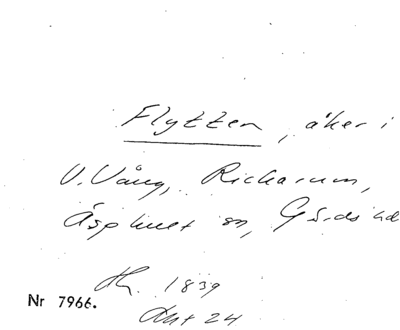 Flytten, åker i
V. Vång, Rickarum,
Äsphult sn, Gärds hd
1839
Akt 24
Nr 7966.